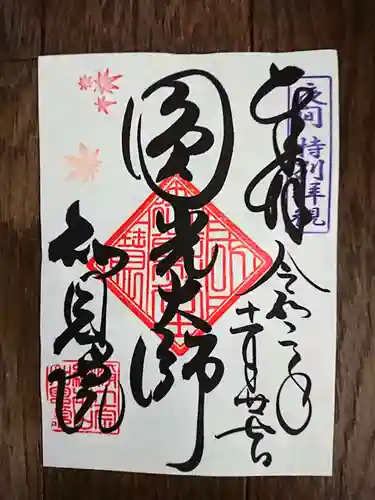 夜間 特別拝観
奉拝
令和二年
十一月
圓光大師
知恩院